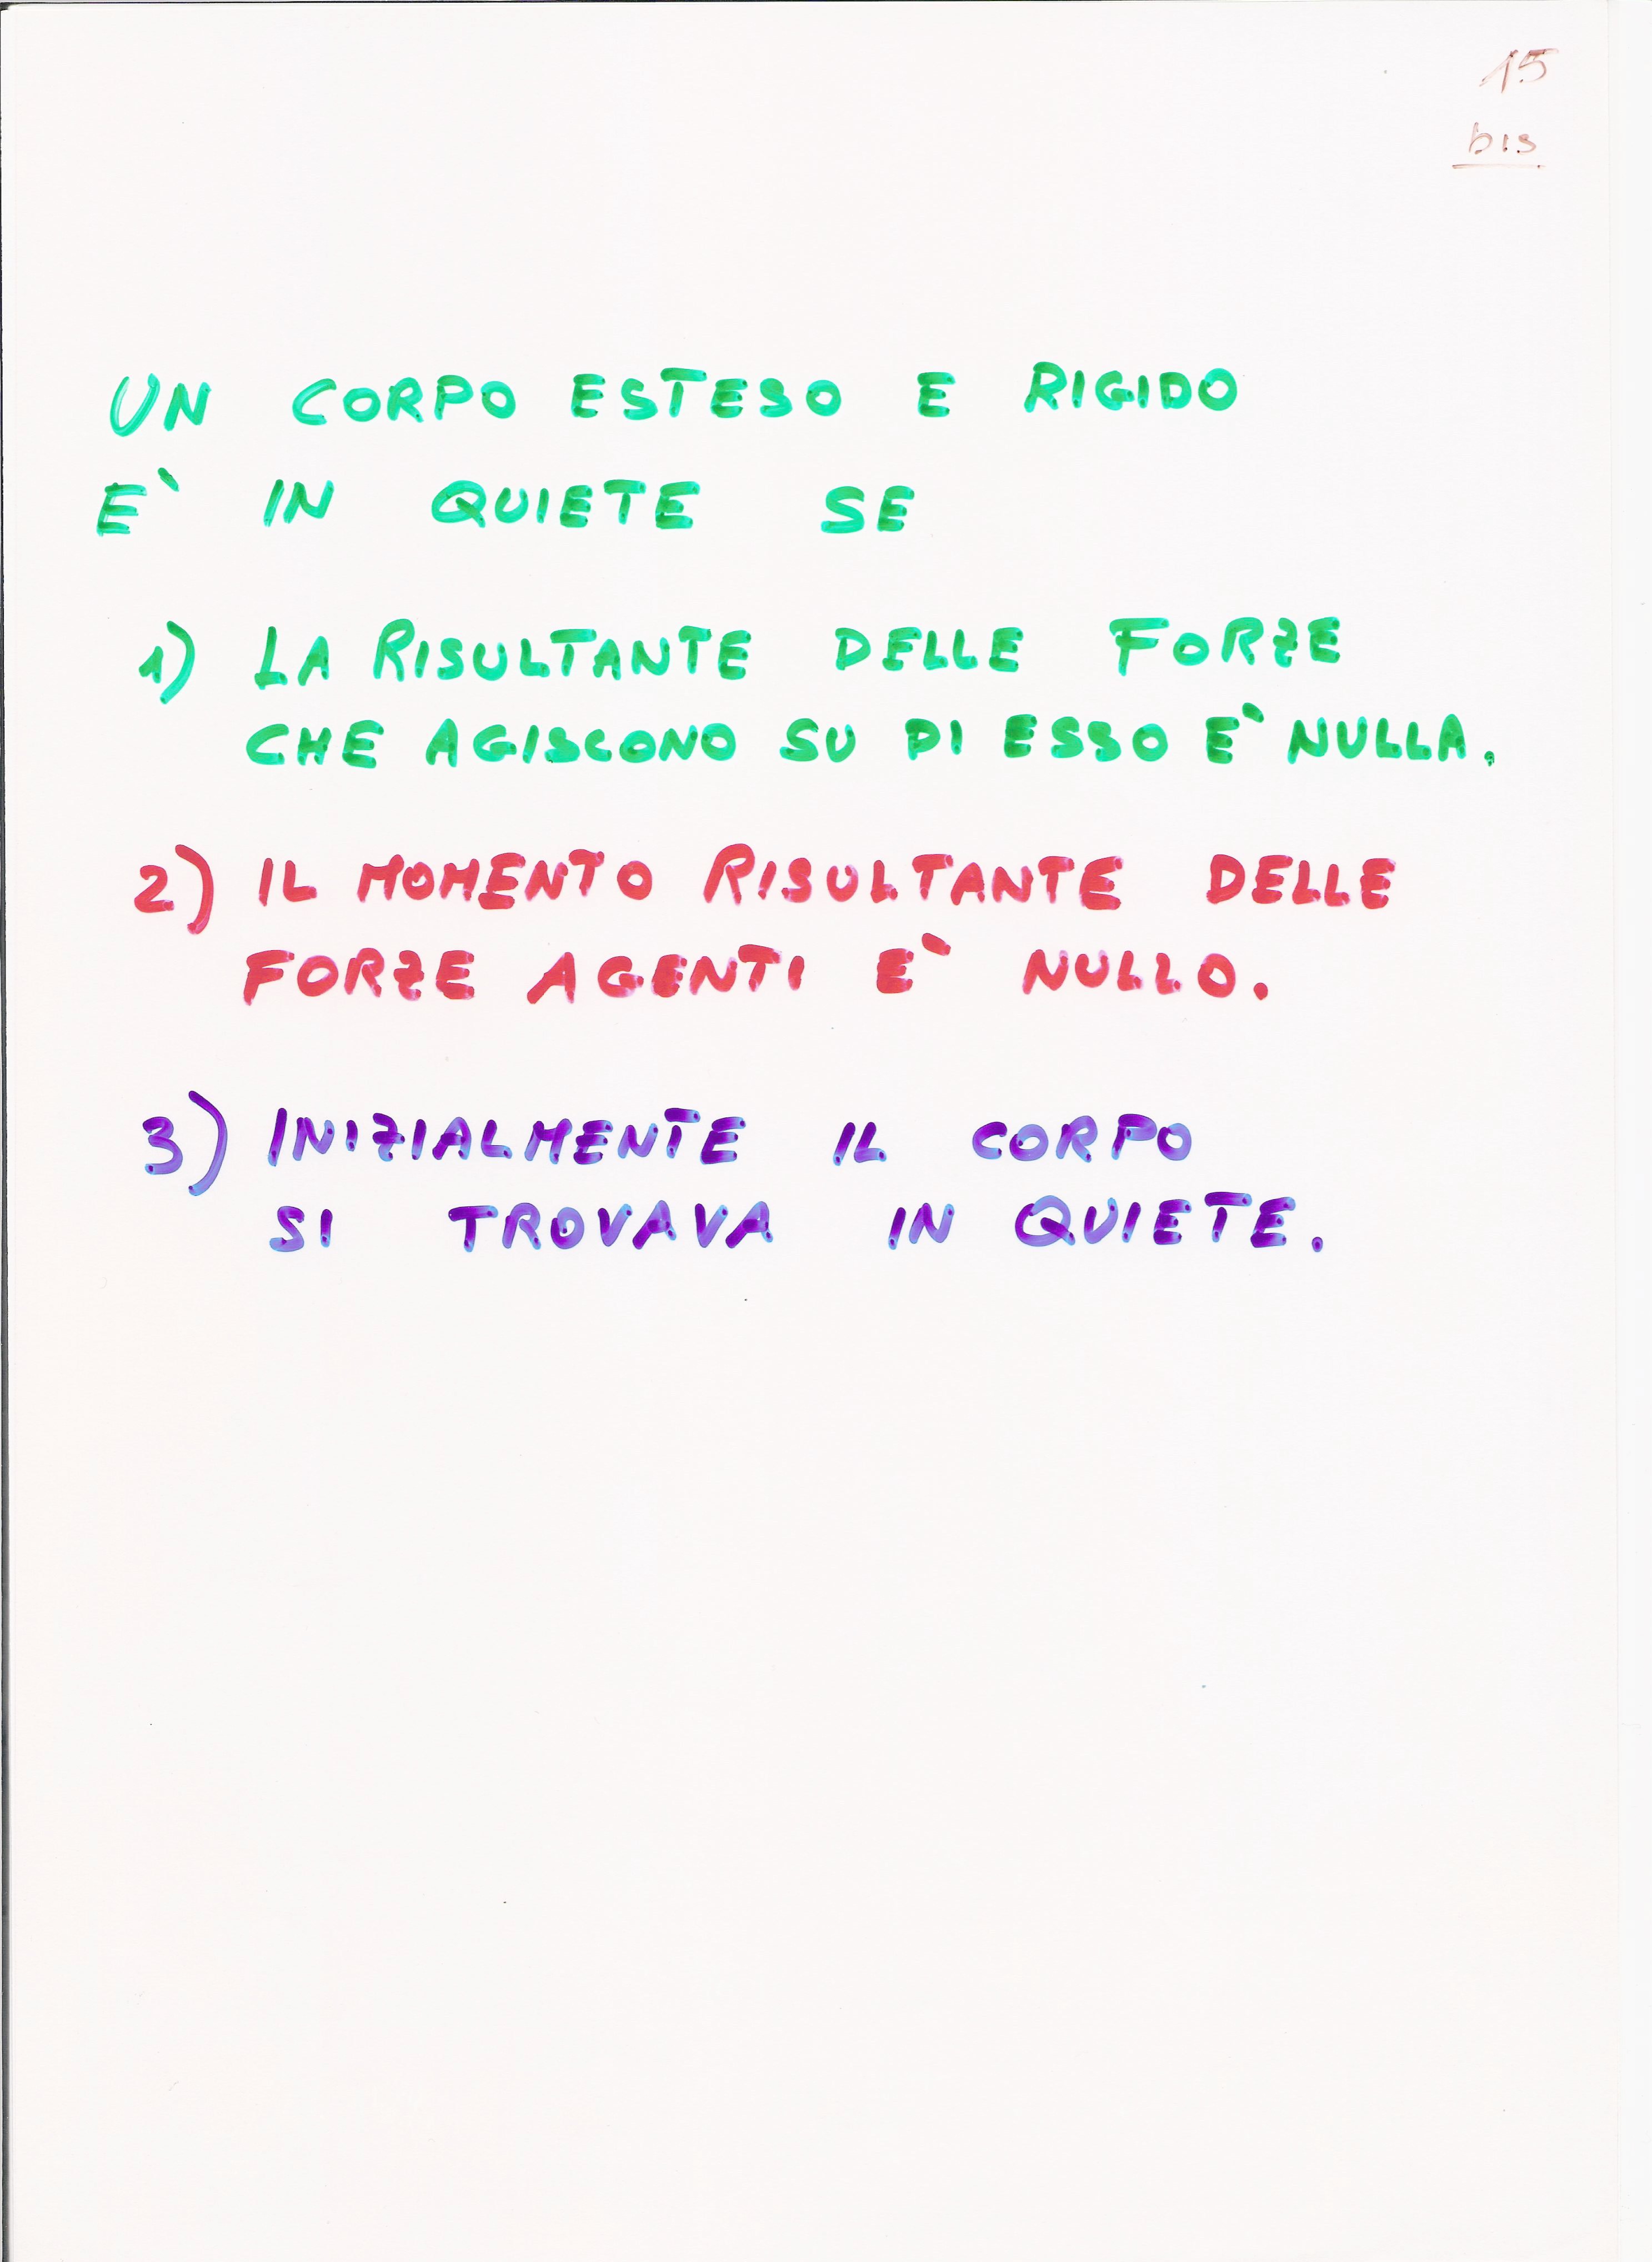 15
bis
UN CORPO ESTESO E RIGIDO
E` IN QUIETE SE
1) LA RISULTANTE DELLE FORZE
CHE AGISCONO SU DI ESSO E` NULLA.
2) IL MOMENTO RISULTANTE DELLE
FORZE AGENTI E` NULLO.
3) INIZIALMENTE IL CORPO
SI TROVAVA IN QUIETE.